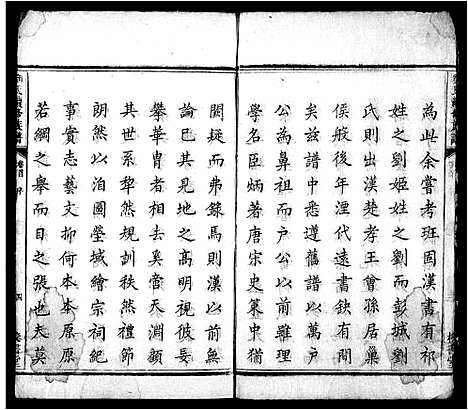 為此余嘗考班固漢書有祁
姓之劉姬姓之劉而彭城劉
氏則出漢楚孝王曾孫居巢
侯般後年湮代遠書缺有間
矣兹譜中悉遵舊譜以萬戶
公為鼻祖而戶公以前雖理
學名臣炳著唐宋史策中猶
闕疑而弗錄焉則漢以前無
論已其見地之高明視彼妄
攀華胄遠引去奚啻天淵哉
其世系條然規訓秩然禮節
朗然以洎圖塋域繪宗祠紀
事實志藝文抑何本本原原
若綱之舉而目之張也夫莫
氏續修族譜
卷首
序
四